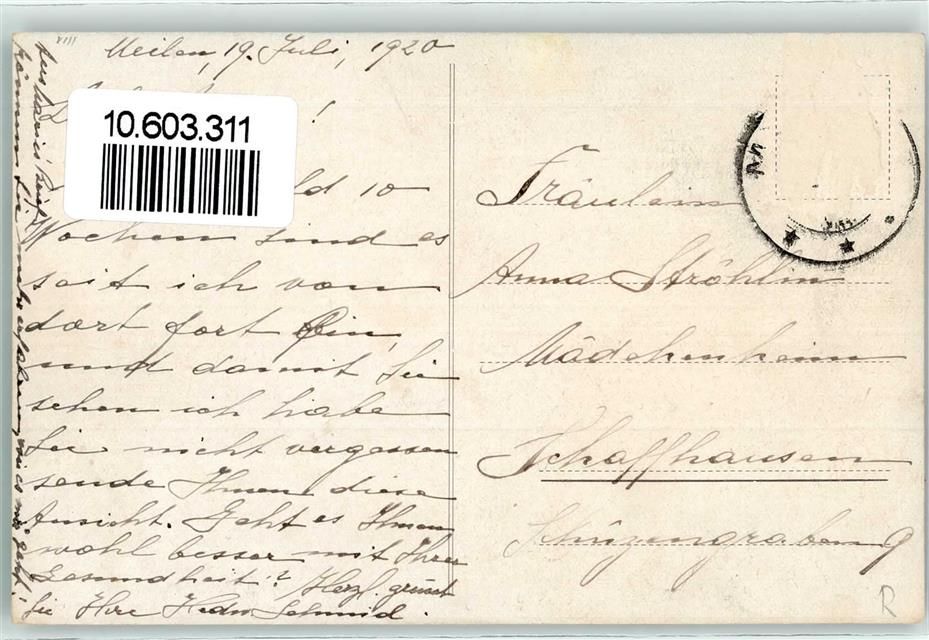 Meilen, 19. Juli, 1920
!
10.603.311
ld 10
Wochen sind es
seit ich von
dort fort bin,
und damit Sie
sehen ich habe
Sie nicht vergessen
sende Ihnen diese
Ansicht. Geht es Ihnen
wohl besser mit Ihrer
Gesundheit? Herzl. grüsst
Sie Ihre Hedw. Schmid.
Fräulein
Anna Ströhlin
Mädchenheim
Schaffhausen
Schützengraben 9
R